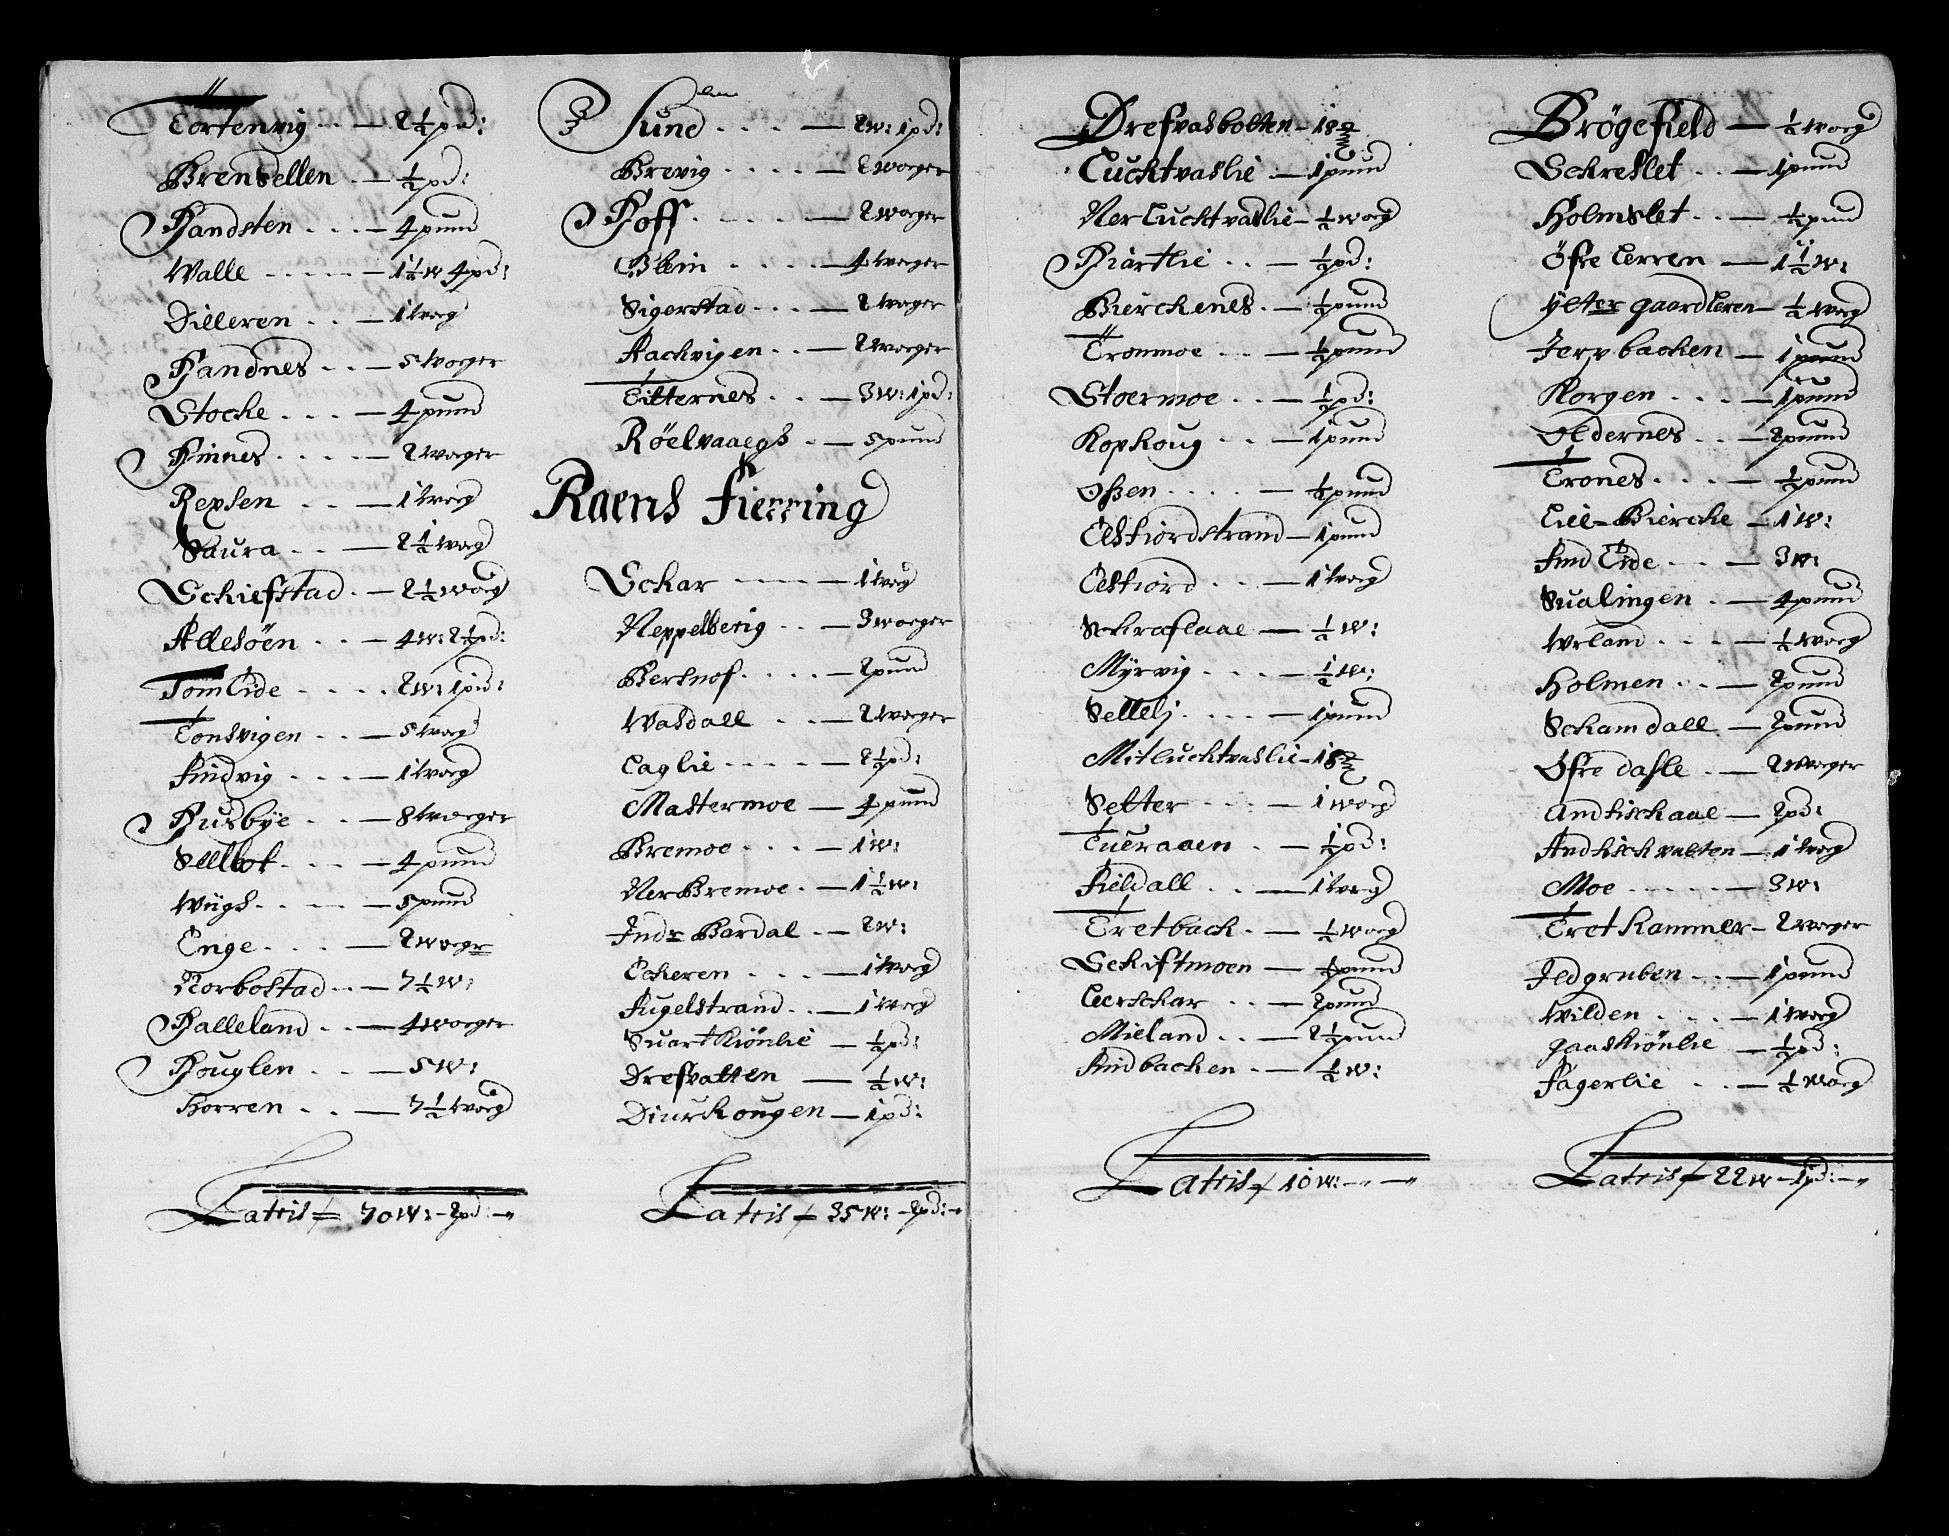 Tortenvig - - — 2½pd:
Brensellen - — ½pd:
Handsten - - - — 4pund
Walle - - - - — 1½w 4pd:
Dilleren - - — 1 Woeg
Handnes - - — 5 Woeger
Stocke - - - — 4pund
Finnes - - - - — 2 Woeger
Rexsen - - — 1 Woeg
Saura - - — 2½ Woeg
Schiefstad - — 2½ Woeg
Allesöen - - - — 4w: 2½pd:
Tom Eide - - - - 2w: 1pd:
Tonsvigen - - — 5 Woeg
Findvig - - - — 1 Woeg
Husbye - - - — 8 Woeger
Sellbot - - - — 4pund
Wiigs - - - — 5pund
Enge - - - — 2 Woeger
Norbostad - - — 7½w:
Halleland - - — 4 Woeger
Houglen - - — 5w:
Horren - - — 7½ Woeg
Latris 70w: - 2pd: -
Sund - - - - — 2w: 1pd:
Brevig - - - - — 2 Woeger
Hoff - - - - — 2 Woeger
Blein - - - - — 4 Woeger
Sigerstad - - - — 2 Woeger
Aachvigen - - — 2 Woeger
Titternes - - — 3w: 1pd:
Röelvaaegs - — 5pund
Raens Fierring
Schar - - - — 1 Woeg
Neppelberig - - — 3 Woeger
Bersnof - - - - — 2pund
Wasdall - - — 2 Woeger
Laglie - - - - — 2½pd:
Mastermoe — 4pund
Bremoe - - - — 1w:
Ner Bremoe - — 1½w:
Indr Bardal - — 2w:
Eckeren - - - — 1 Woeg
Fugelstrand - - — 1 Woeg
Suart Kiönlie — ½pd:
Drefvatten — ½w:
Diurkougen — 1pd:
Latris 35w: - 2pd: -
Drefvasbotten — 18
Lucktvaslie — 1pund
Ner Lucktvaslie — ½ Woeg
Hiartlie - - — ½pd:
Bierckenes - — ½pund
Tronmoe - - — ½pund
Stoermoe - - — ½pd:
Kopkoug - - — 1pund
Ossen - - - - — ½pund
Elsfiordstrand — 1pund
Elsfiord - - — 1 Woeg
Schraflaae — ½w:
Myrvig - - - — ½w:
Sellelj - - - — 1pund
Mitlucktvaslie — 18
Setter - - - — 1 Woeg
Tueraaen - — ½pd:
Fieldall - - — 1 Woeg
Tretback - — ½ Woeg
Schiftmoen — ½pund
Leerskar - - — 2pund
Mieland - - — 2½pund
Findbacken - — ½w:
Latris 10w: - -
Brögefield — ½ Woeg
Schreslet - - — 1pund
Holmslet - - — ½pund
Öfre Lerren — 1½w:
Ytter gaardleren — ½ Woeg
Jerpbacken — 1pund
Korgen - - - — 1pund
Oldernes - - — 2pund
Trones - - - — ½pund
Lil-Biercke — 1w:
Find Eide - - — 3w:
Sualingen - — 4pund
Urland - - - — ½ Woeg
Holmen - - — 2pund
Schamdall — 2pund
Öfre dasle - — 2 Woeger
Andfisckaae — 2pd:
Andfisckvatten — 1 Woeg
Moe - - - - — 3w:
Tret Kammer — 2 Woeger
Ildgruben - - — 1pund
Wilden - - - — 1 Woeg
Gaaskiönlie — ½pd:
Fagerlie - - — ½ Woeg
Latris 22w - 1pd: -